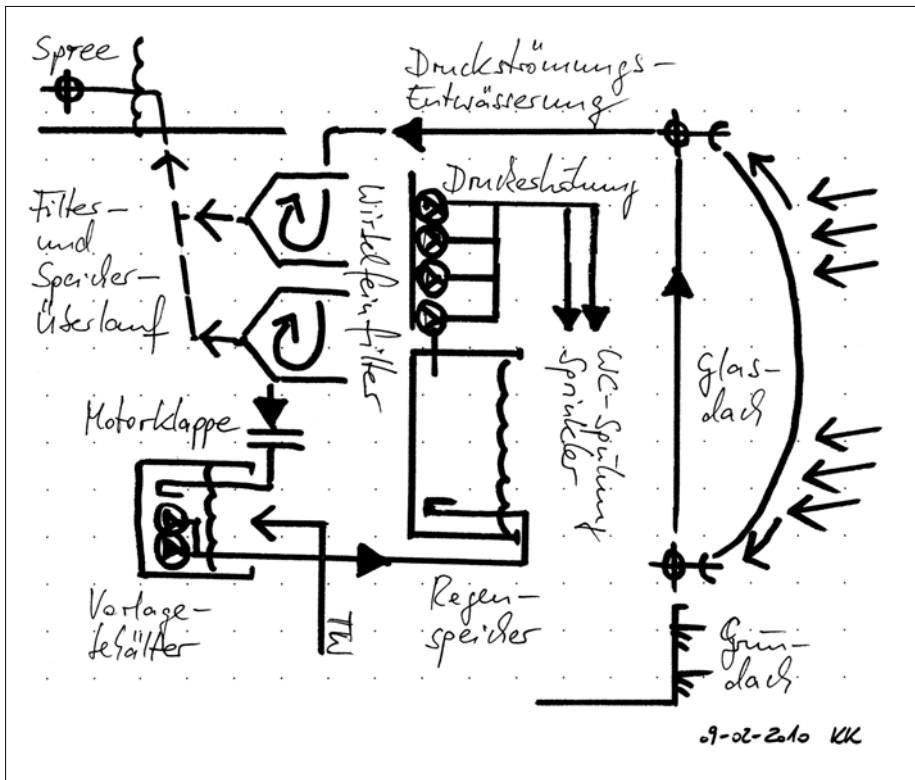 Spree
Druckströmungs-
Entwässerung
Filter-
und
Speicher-
Überlauf
Wirbelfeinfilter
Druckerhöhung
WC-Spülung
Sprinkler
Glas-
dach
Motorklappe
Vorlage-
behälter
TW
Regen-
speicher
Grün-
dach
09-02-2010 KK